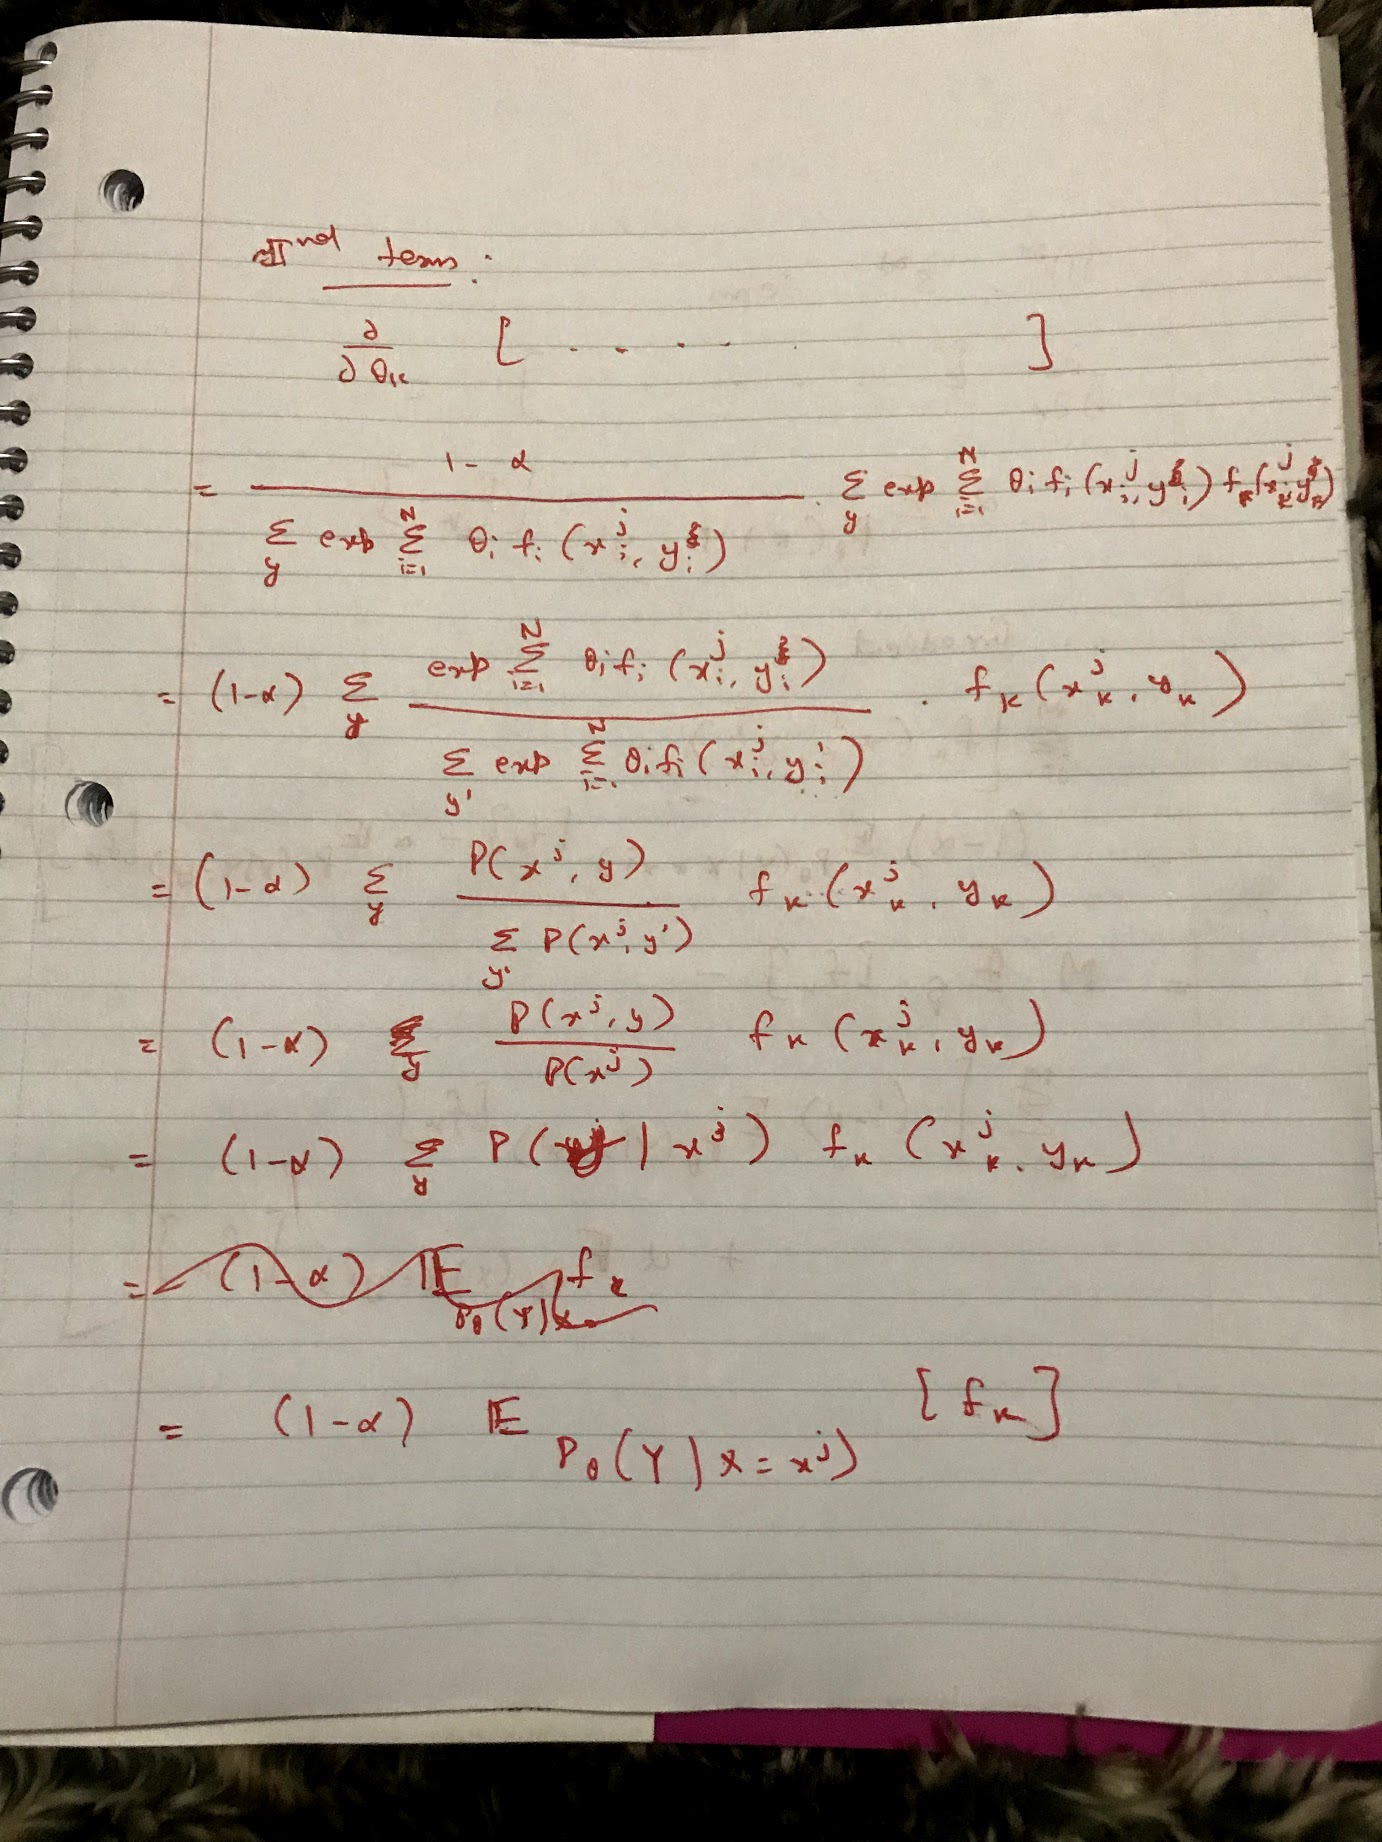 IInd term:
∂/∂θk [ . . . . . ]
= (1-α) / (Σ_y exp Σ_{i=1}^N θi fi (x_i^j, y_i)) · Σ_y exp Σ_{i=1}^N θi fi (x_i^j, y_i) fk (x_k^j, y_k)
= (1-α) Σ_y (exp Σ_{i=1}^N θi fi (x_i^j, y_i)) / (Σ_y' exp Σ_{i=1}^N θi fi (x_i^j, y_i')) · fk (x_k^j, y_k)
= (1-α) Σ_y P(x^j, y) / (Σ_y' P(x^j, y')) fk (x_k^j, y_k)
= (1-α) Σ_y P(x^j, y) / P(x^j) fk (x_k^j, y_k)
= (1-α) Σ_y P(y | x^j) fk (x_k^j, y_k)
= (1-α) 𝔼_{Pθ(Y|X} fk
= (1-α) 𝔼_{Pθ(Y | X = x^j)} [fk]